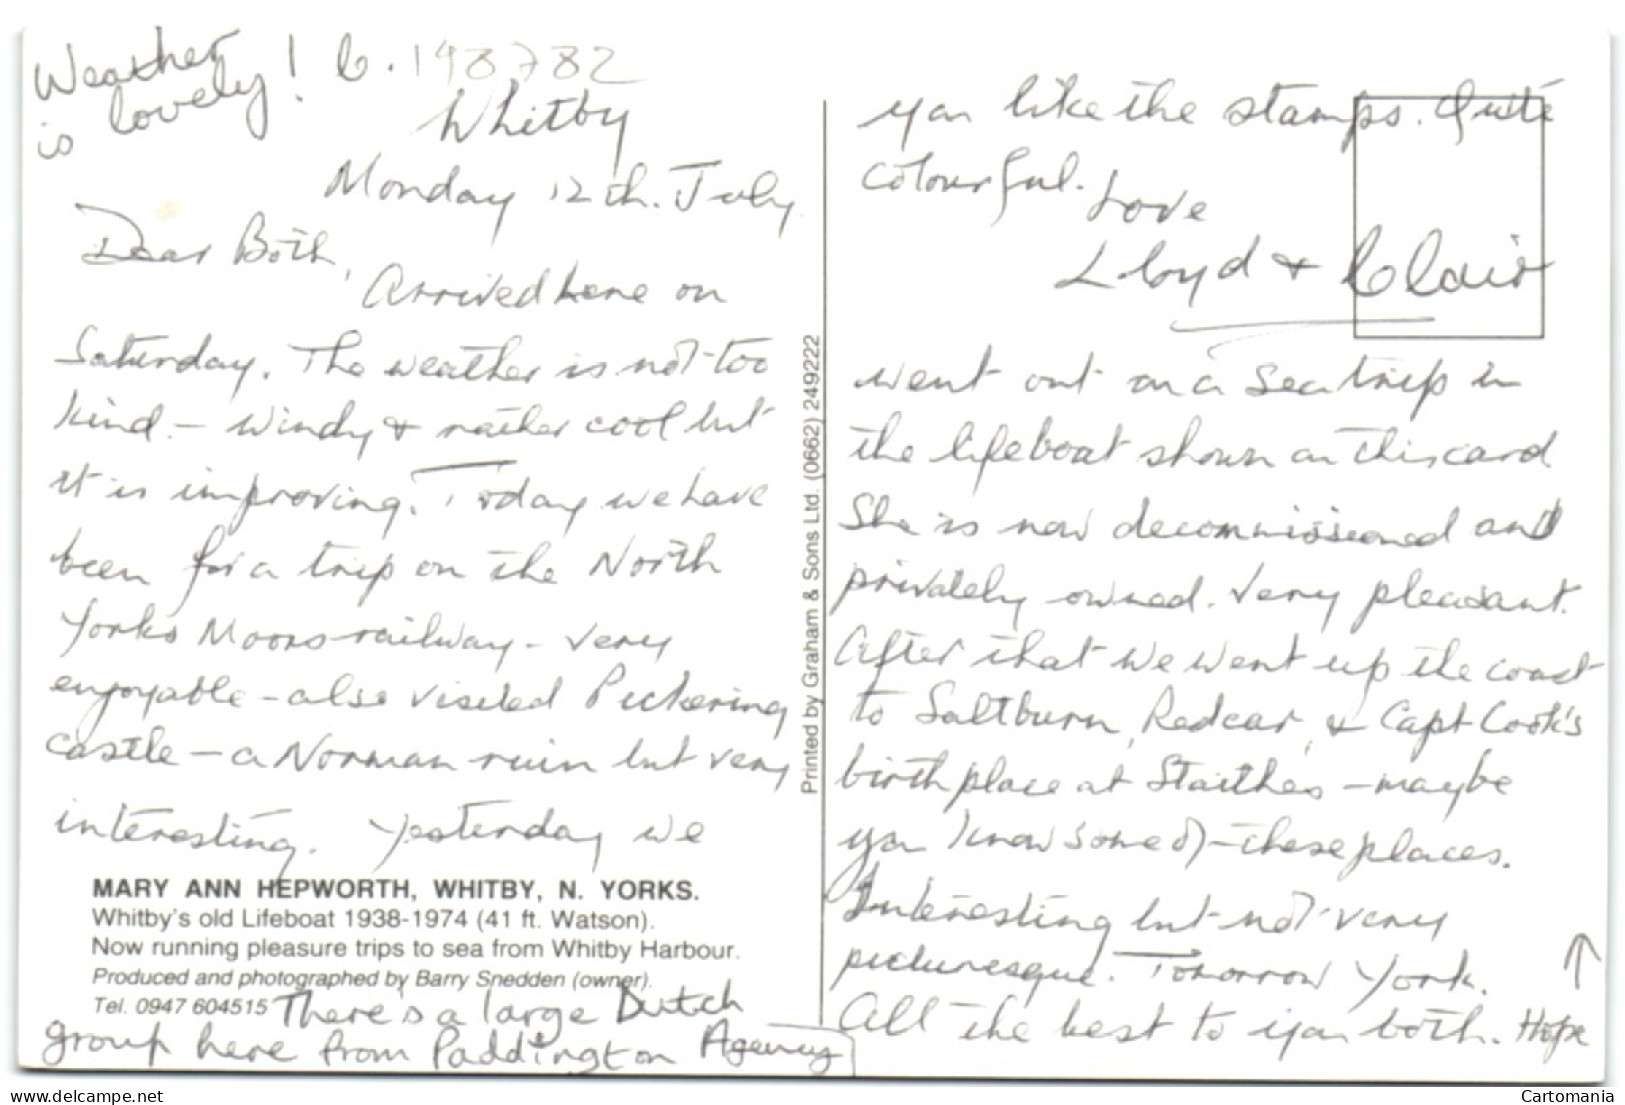 Weather
is lovely! C. 198782
Whitby
Monday 12th. July
Dear Both,
Arrived here on
Saturday. The weather is not too
kind - windy & rather cool but
it is improving. Today we have
been for a trip on the North
Yorks Moors railway - very
enjoyable - also visited Pickering
castle - a Norman ruin but very
interesting. Yesterday we
MARY ANN HEPWORTH, WHITBY, N. YORKS.
Whitby's old Lifeboat 1938-1974 (41 ft. Watson).
Now running pleasure trips to sea from Whitby Harbour.
Produced and photographed by Barry Snedden (owner).
Tel. 0947 604515
There's a large Dutch
group here from Paddington Agency
Printed by Graham & Sons Ltd. (0662) 249222
went out on a sea trip in
the lifeboat shown on this card
She is now decommissioned and
privately owned. Very pleasant.
After that we went up the coast
to Saltburn, Redcar, & Capt Cook's
birthplace at Staithes - maybe
you know some of these places.
Interesting but not very
picturesque. Tomorrow York.
All the best to you both. Hope
you like the stamps. Quite
colourful. Love
Lloyd & Clair
Cartomania
www.delcampe.net